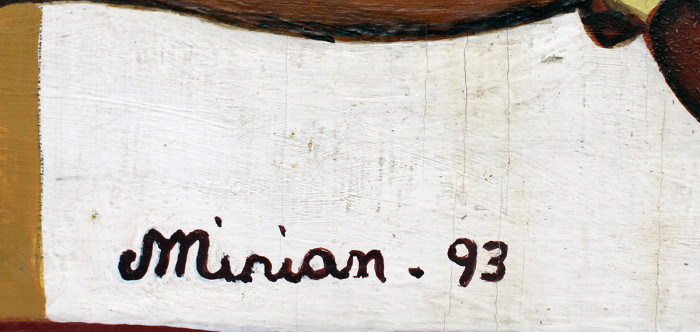 Mirian. 93